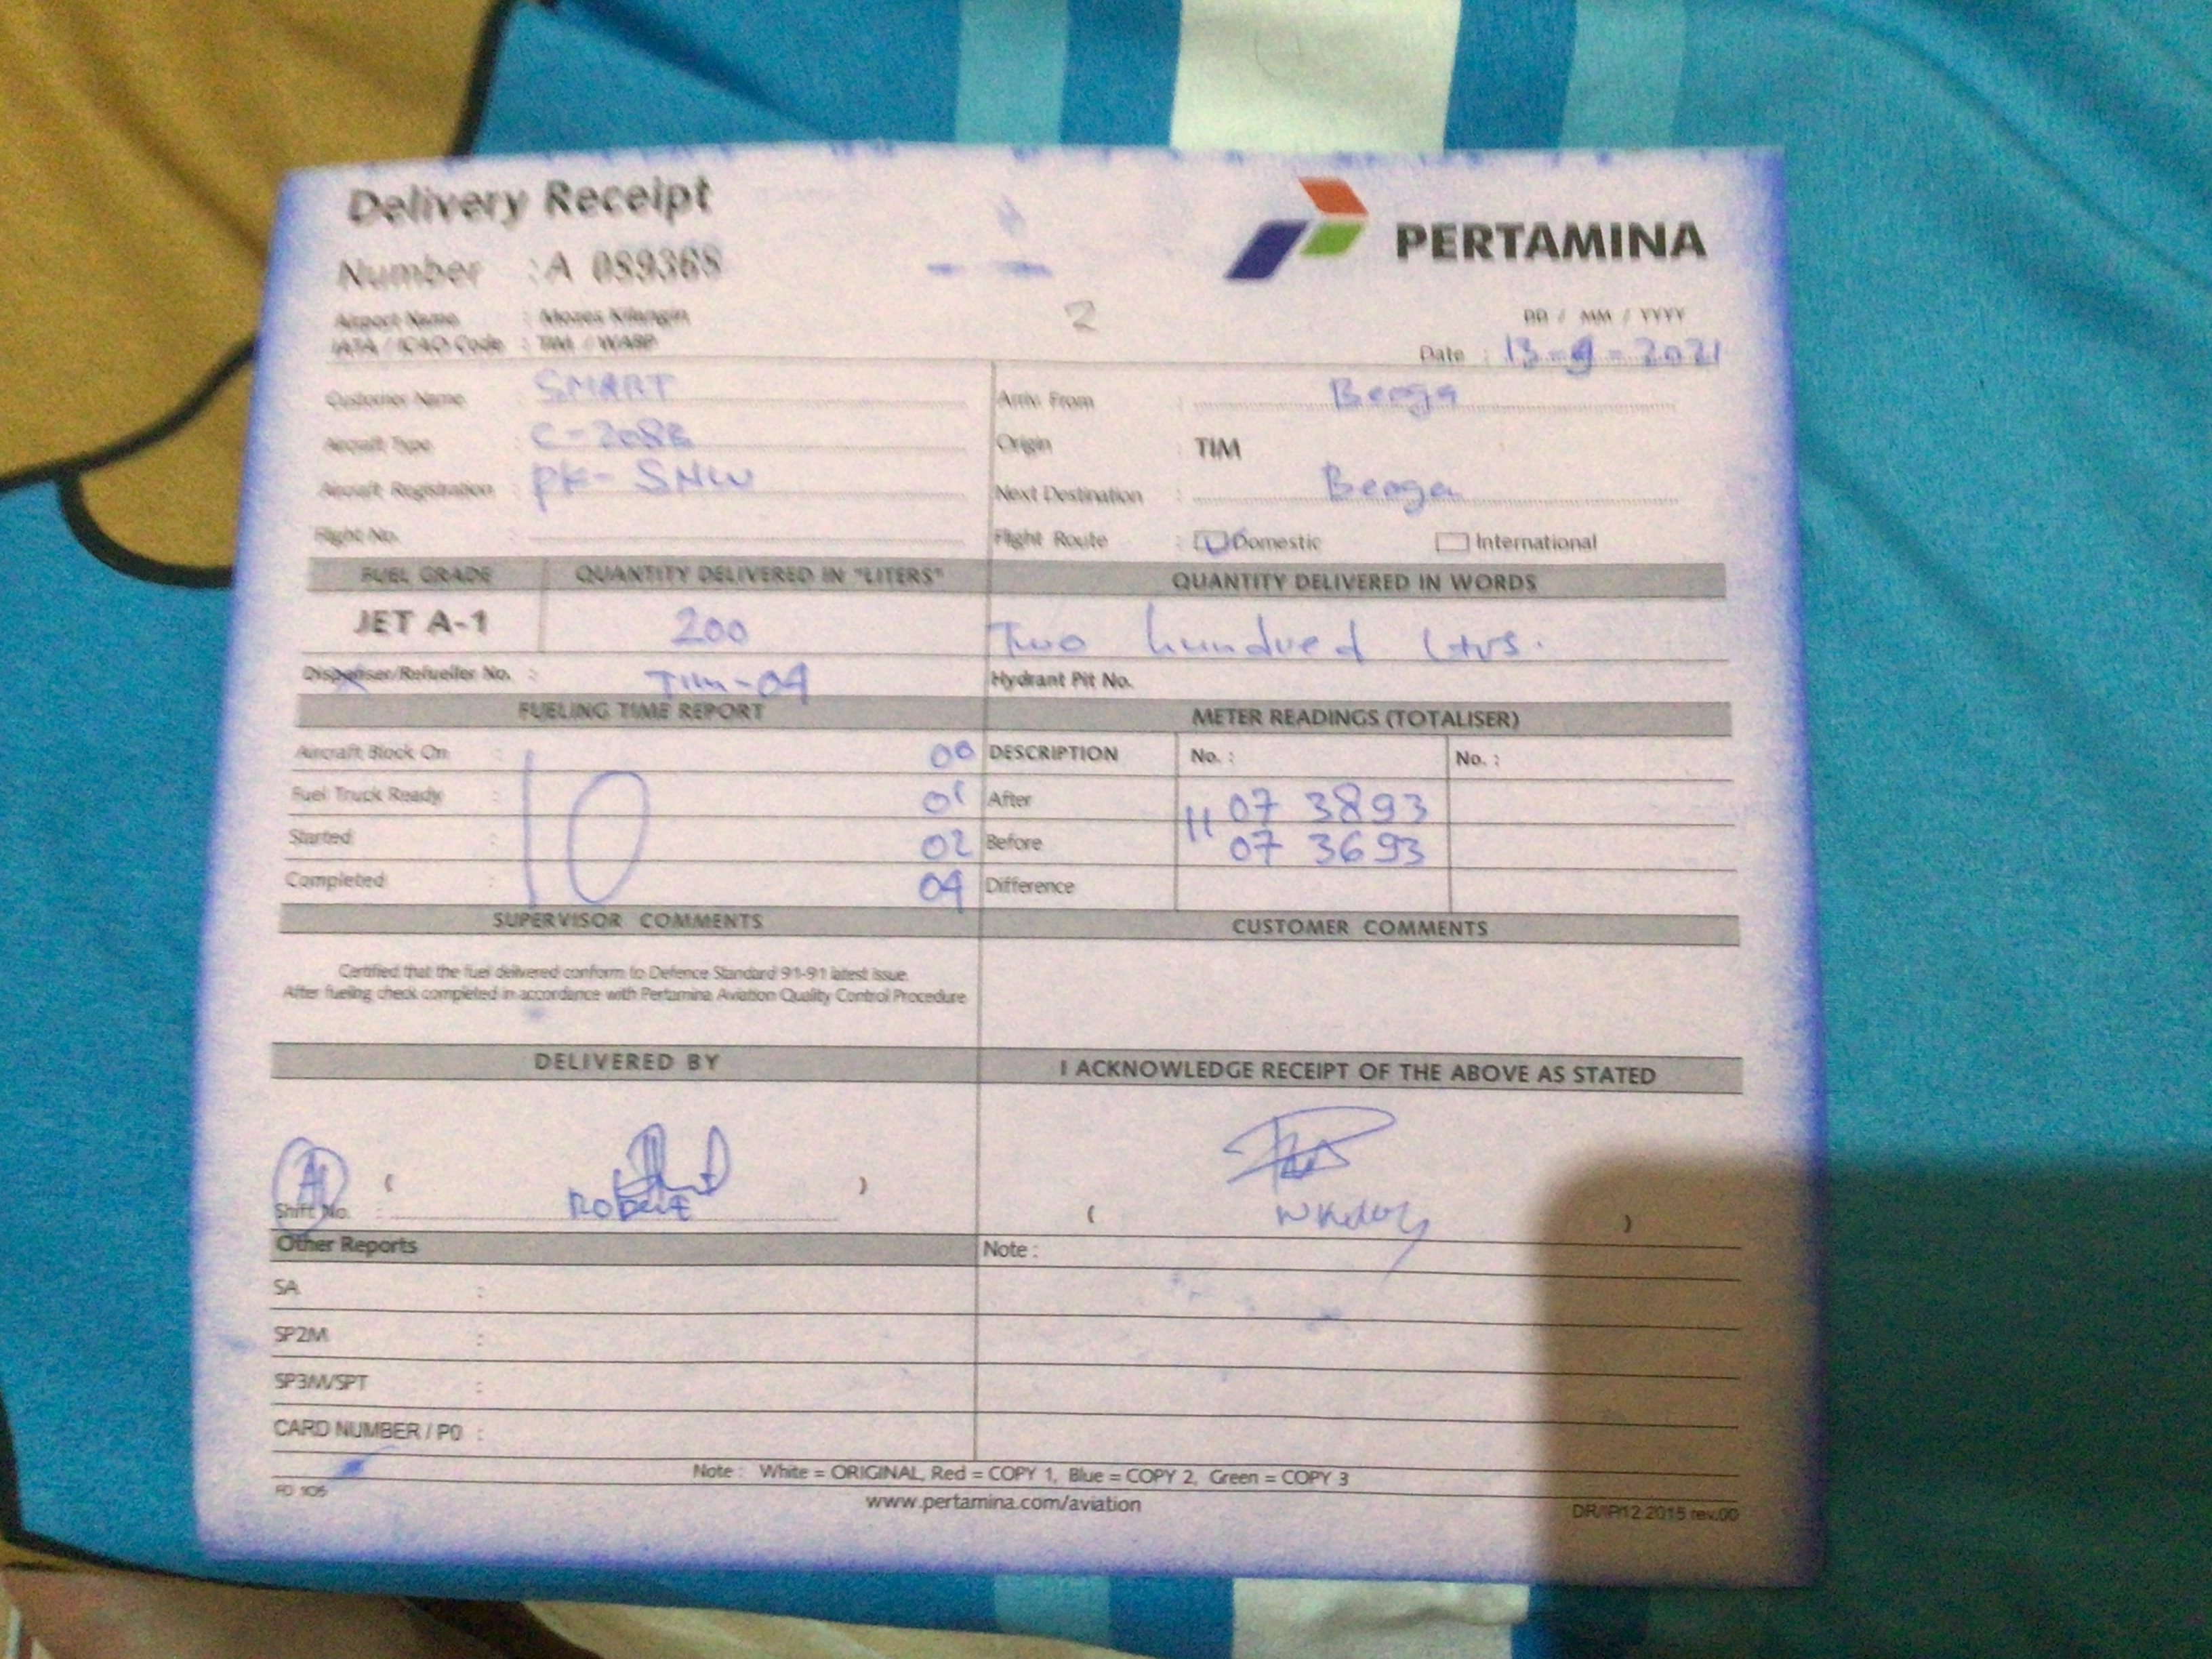 Delivery Receipt
PERTAMINA
Number : A 089368
2
Airport Name : Mozes Kilangin
DD / MM / YYYY
IATA / ICAO Code : TIM / WABP
Date : 13-9-2021
Customer Name : SMART
Arriv. From : Beoga
Aircraft Type : C-208B
Origin : TIM
Aircraft Registration : PK-SNW
Next Destination : Beoga
Flight No. :
Flight Route : Domestic International
FUEL GRADE QUANTITY DELIVERED IN "LITERS" QUANTITY DELIVERED IN WORDS
JET A-1 200 Two hundred Ltrs.
Dispenser/Refueller No. : TIM-04 Hydrant Pit No.
FUELING TIME REPORT METER READINGS (TOTALISER)
Aircraft Block On : 00 DESCRIPTION No. : No. :
Fuel Truck Ready : 10 01 After 07 3893
Started : 02 Before 07 3693
Completed : 04 Difference
SUPERVISOR COMMENTS CUSTOMER COMMENTS
Certified that the fuel delivered conform to Defence Standard 91-91 latest issue.
After fueling check completed in accordance with Pertamina Aviation Quality Control Procedure
DELIVERED BY I ACKNOWLEDGE RECEIPT OF THE ABOVE AS STATED
A ( )
Shift No. : Robert ( )
Other Reports Note :
SA :
SP2M :
SP3M/SPT :
CARD NUMBER / PO :
Note : White = ORIGINAL, Red = COPY 1, Blue = COPY 2, Green = COPY 3
FD 105
www.pertamina.com/aviation
DR/IP/12.2015 rev.00